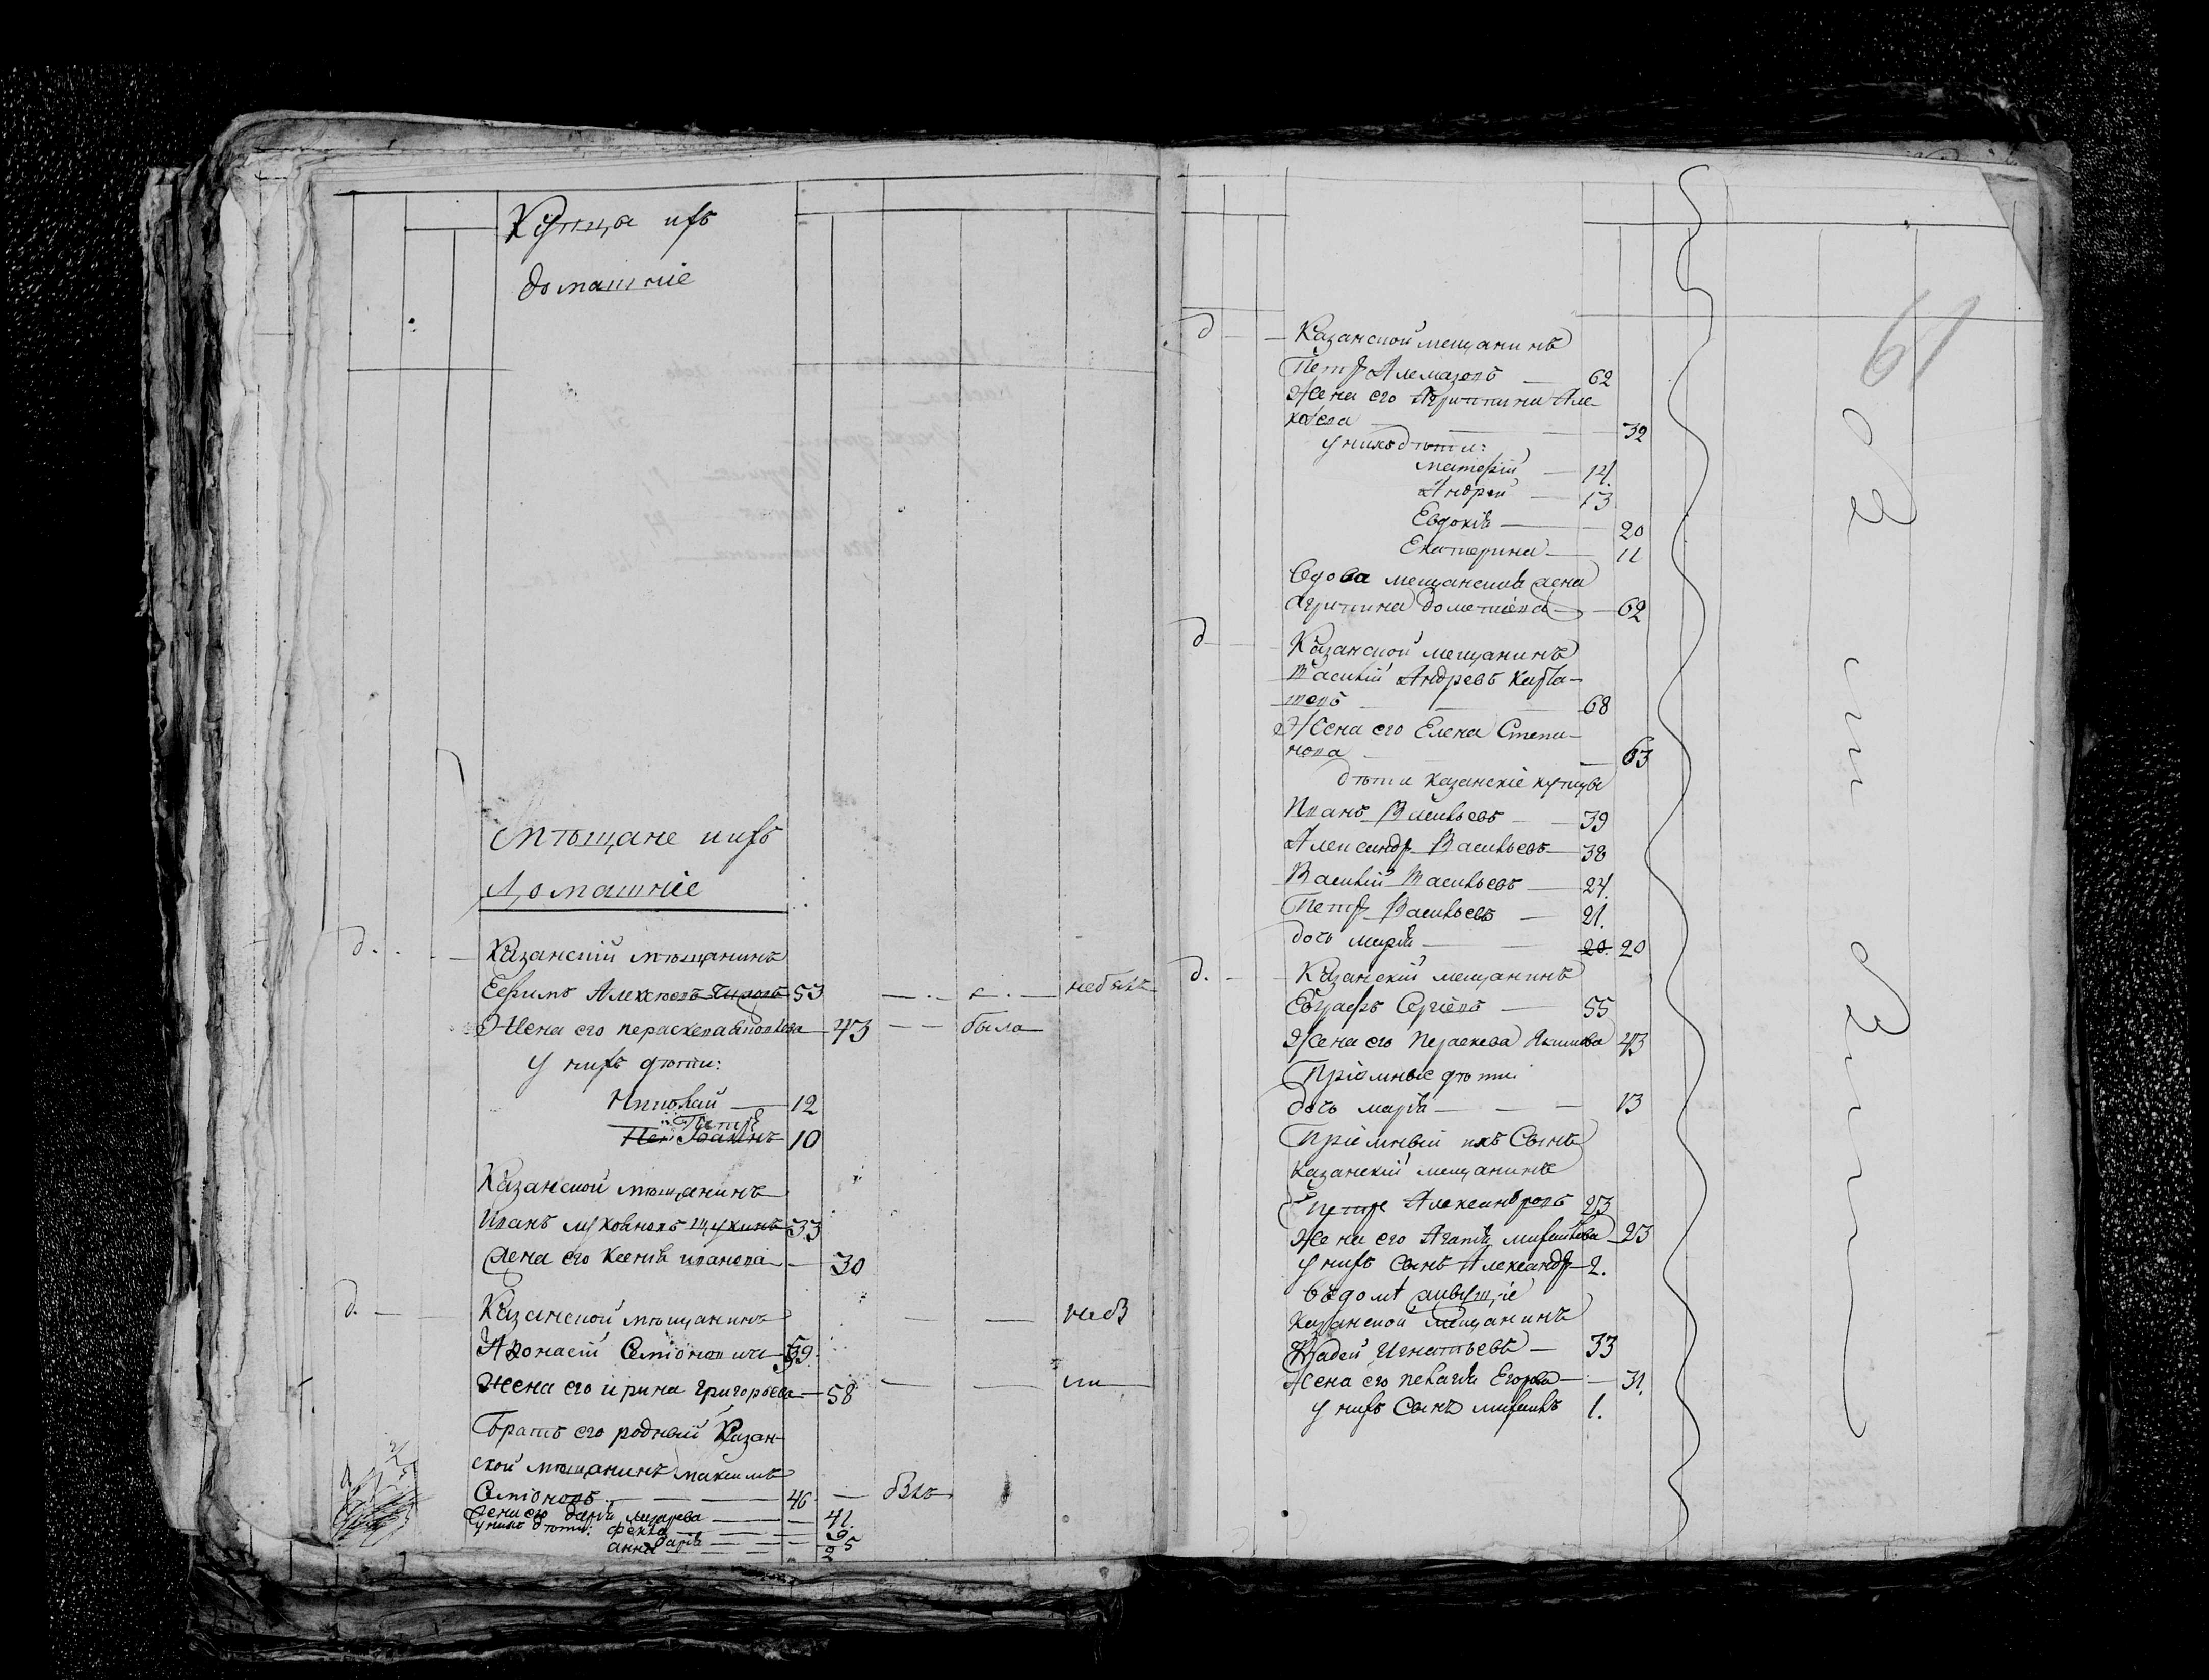 Купцы ихъ
домашніе
Мѣщане ихъ
Домашніе
д. Казанскій мѣщанинъ
Ефимъ Алексѣевъ 53
Жена его параскева 43 была
У нихъ дѣти:
Николай 12
Петръ
Іоаннъ 10
Казанской мѣщанинъ
Иванъ щукинъ 33
Жена его Ксенія иванова 30
д. Казанской мѣщанинъ
Афонасій Семіоновичъ 59
Жена его ирина григорьева 58
Братъ его родный Казан-
ской мѣщанинъ максимъ
Семіоновъ 46
Жена его дарія лазарева 41.
У нихъ дѣти: фекла 9
дарія 5
анна 2
д Казанской мещанинъ
Петръ Алемазовъ 62
Жена его Агрипина Але-
ксѣева 32
У нихъ дѣти:
матфій 14.
Андрей 13
Евдокія 20
Екатерина 11
Вдова мещанская жена
агрипина дометіева 62
д Казанской мещанинъ
Василій Андревъ
68
Жена его Елена Степа-
нова 63
дѣти казанскіе купцы
Иванъ Васильевъ 39
Александръ Васильевъ 38
Василій Васильевъ 24.
Петръ Васильевъ 21.
дочь марія 20. 20
д. Казанскій мещанинъ
Евграфъ Сергіевъ 55
Жена его Параскева Якимова 43
Пріемные дѣти
дочь марія 13
Пріемный ихъ Сынъ
казанскій мещанинъ
Петръ Александровъ 23
Жена его Агапія михайлова 23
У нихъ Сынъ Александръ 2.
Въ домѣ живущіе
Казанской мещанинъ
Фадей Игнатьевъ 33
Жена его пелагія Егорова 31.
У нихъ Сынъ михаилъ 1.